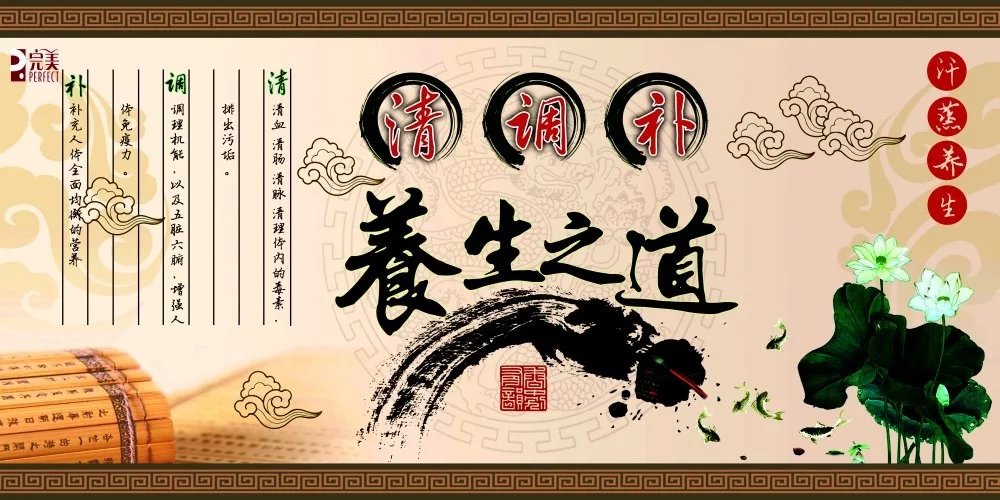 完美
PERFECT
汗蒸养生
清 调 补
養生之道
清
清血清肠清脉清理体内的毒素，
排出污垢。
调
调理机能，以及五脏六腑，增强人
体免疫力。
补
补充人体全面均衡的营养